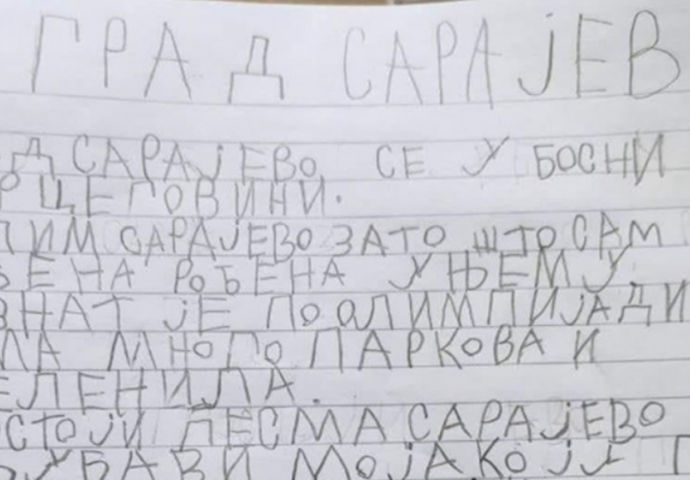 ГРАД САРАЈЕВ
Д САРАЈЕВО СЕ У БОСНИ
РЦЕГОВИНИ.
ЛИМ САРАЈЕВО ЗАТО ШТО САМ
ЂЕНА РОЂЕНА У ЊЕМУ
ЗНАТ ЈЕ ПО ОЛИМПИЈАДИ
МНОГО ПАРКОВА И
ЕЛЕНИЛА.
СТОЈИ ПЕСМА САРАЈЕВО
ЉУБАВИ МОЈА КОЈУ П